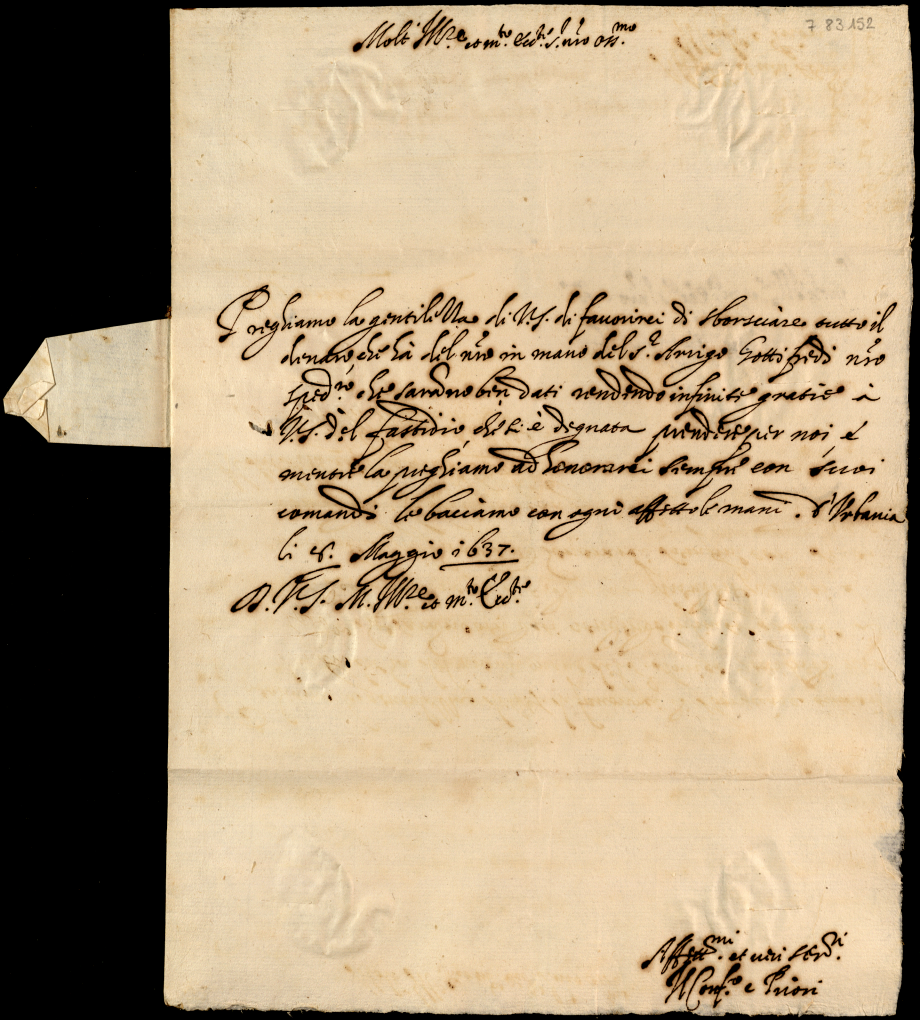 7 83152
Molt Ill.re et m.to Ecc.te S.r n͞ro oss.mo
Preghiamo la gentilezza di V.S. di favorirci di sborsciare tutto il
denaro che hà del n͞ro in mano del S.r Arrigo Gottifredi n͞ro
sped.re che saranno ben dati rendendo infinite gratie à
V.S. del fastidio che si è degnata prendere per noi è
mentre la preghiamo ad honorarci sempre con suoi
comandi le bacciamo con ogni affetto le mani. d'Urbania
li 8. Maggio 1637.
D. V.S. M. Ill.re et m.to Ecc.te
Affett.mi et veri ser.ri
Il Conf.re e Priori